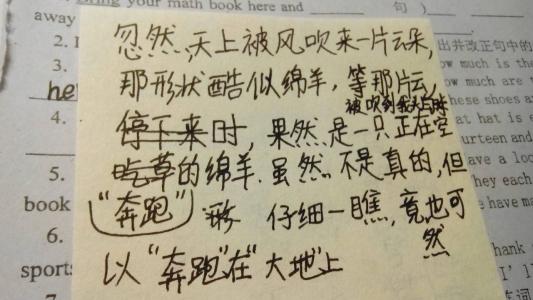 Bring your math book here and 句 )
away
忽然,天上被风吹来一片云朵,
2. 出并改正句中的
3. 那形状酷似绵羊,等那片云,
ow much is the
ow much are t
he 被吹到我头上时
hese shoes a
4. 停下来时,果然是一只正在空
at hat is e
urteen and
5. 吃草的绵羊.虽然不是真的,但
ave a loo
hey each
book "奔跑" 形 仔细一瞧,竟也可
e have ma
6. 然
hank
sports 以"奔跑"在"大地"上